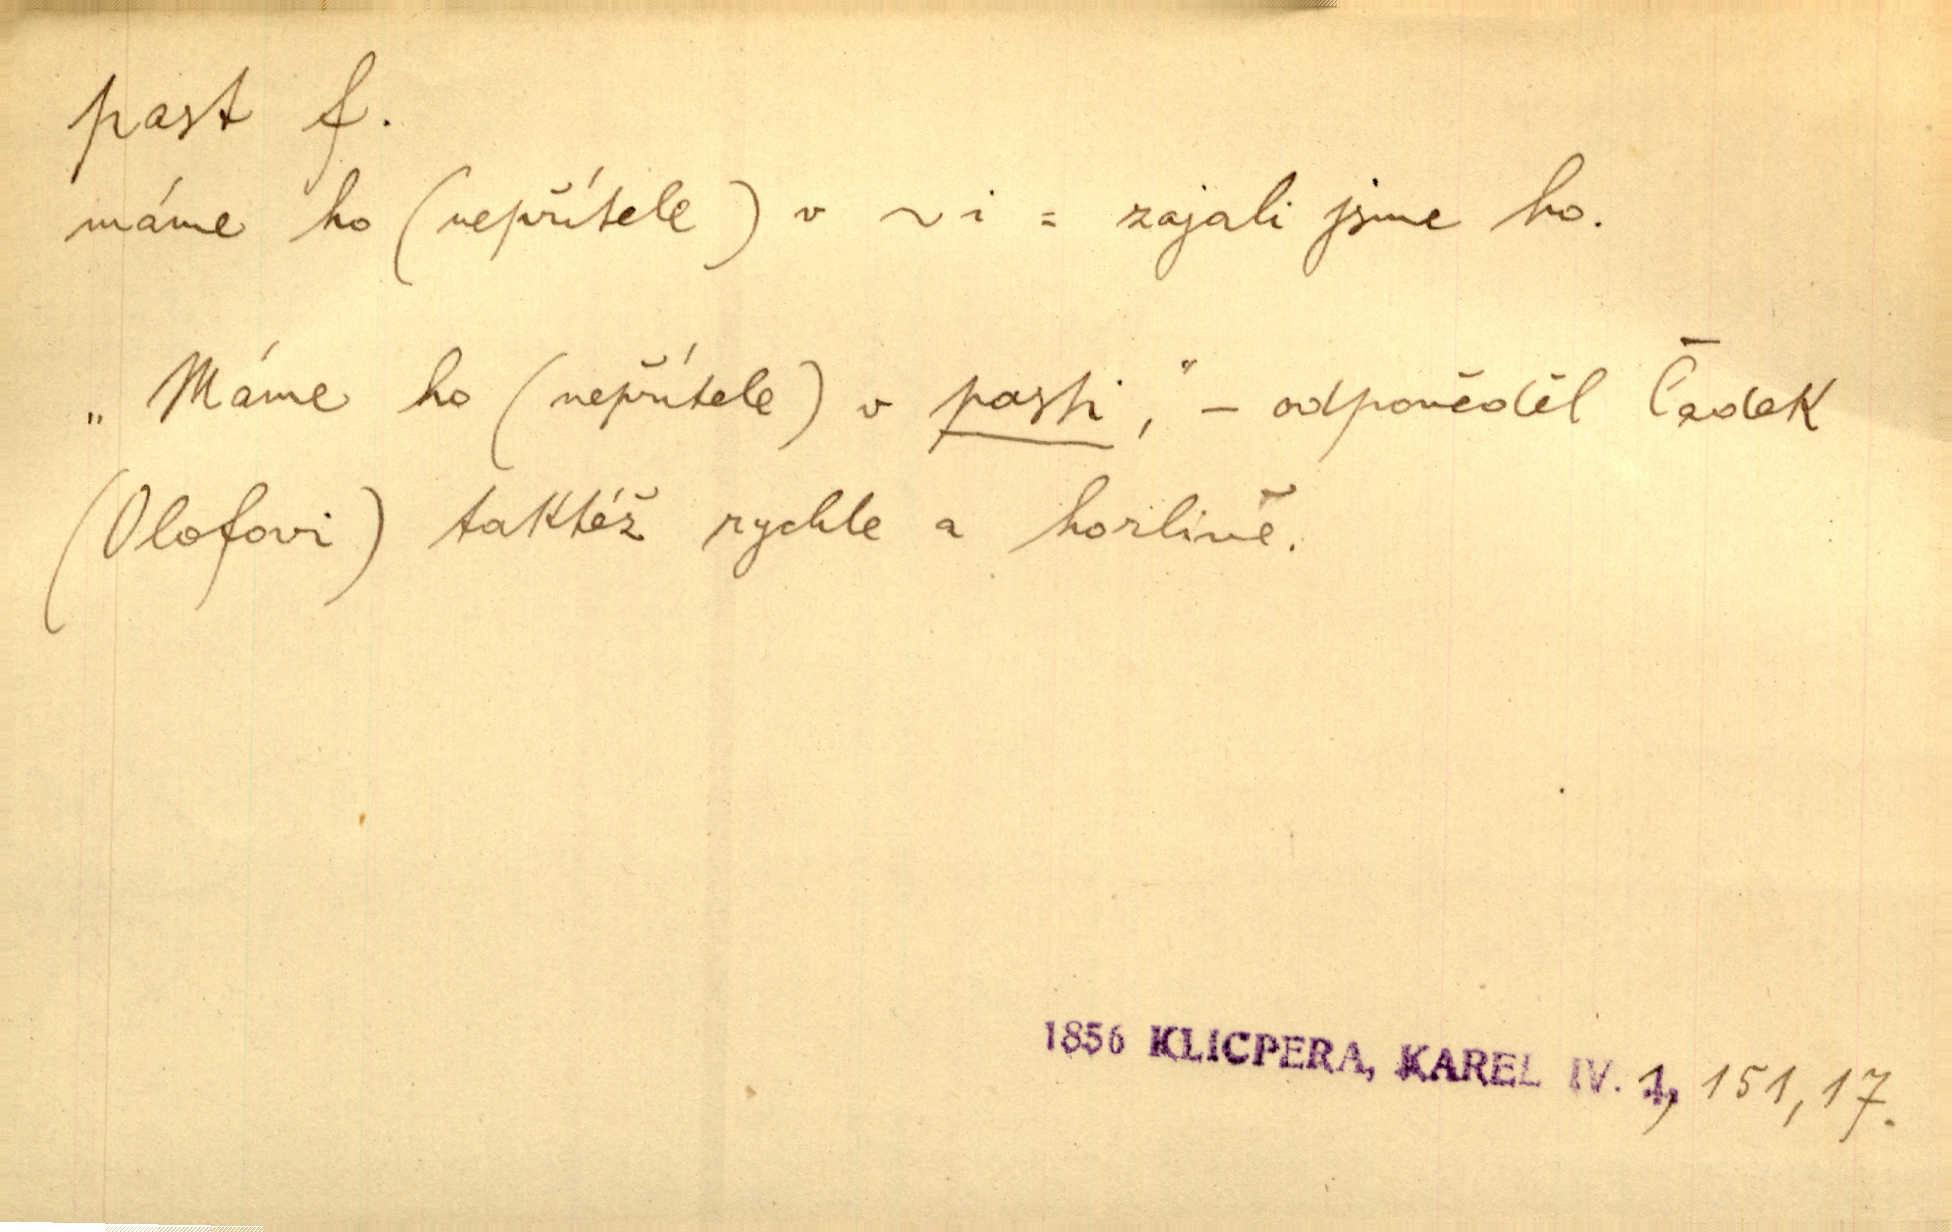 past f.
máme ho (nepřítele) v ~i = zajali jsme ho.
„Máme ho (nepřítele) v pasti," – odpověděl Čadek
(Olofovi) taktéž rychle a horlivě.
1856 KLICPERA, KAREL IV. 1, 151, 17.